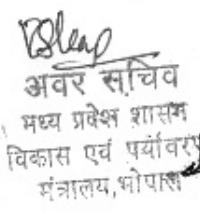 अवर सचिव
मध्य प्रदेश शासन
विकास एवं पर्यावरण
मंत्रालय, भोपाल